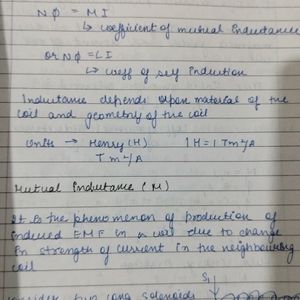 Nφ = MI
↳ coefficient of mutual Inductance
or Nφ = LI
↳ coeff of self Induction
Inductance depends upon material of the
coil and geometry of the coil
Units → Henry (H) 1 H = 1 Tm²/A
Tm²/A
Mutual Inductance (M)
It is the phenomenon of production of
induced EMF in a coil due to change
in strength of current in the neighbouring
coil
S₁
two long solenoids